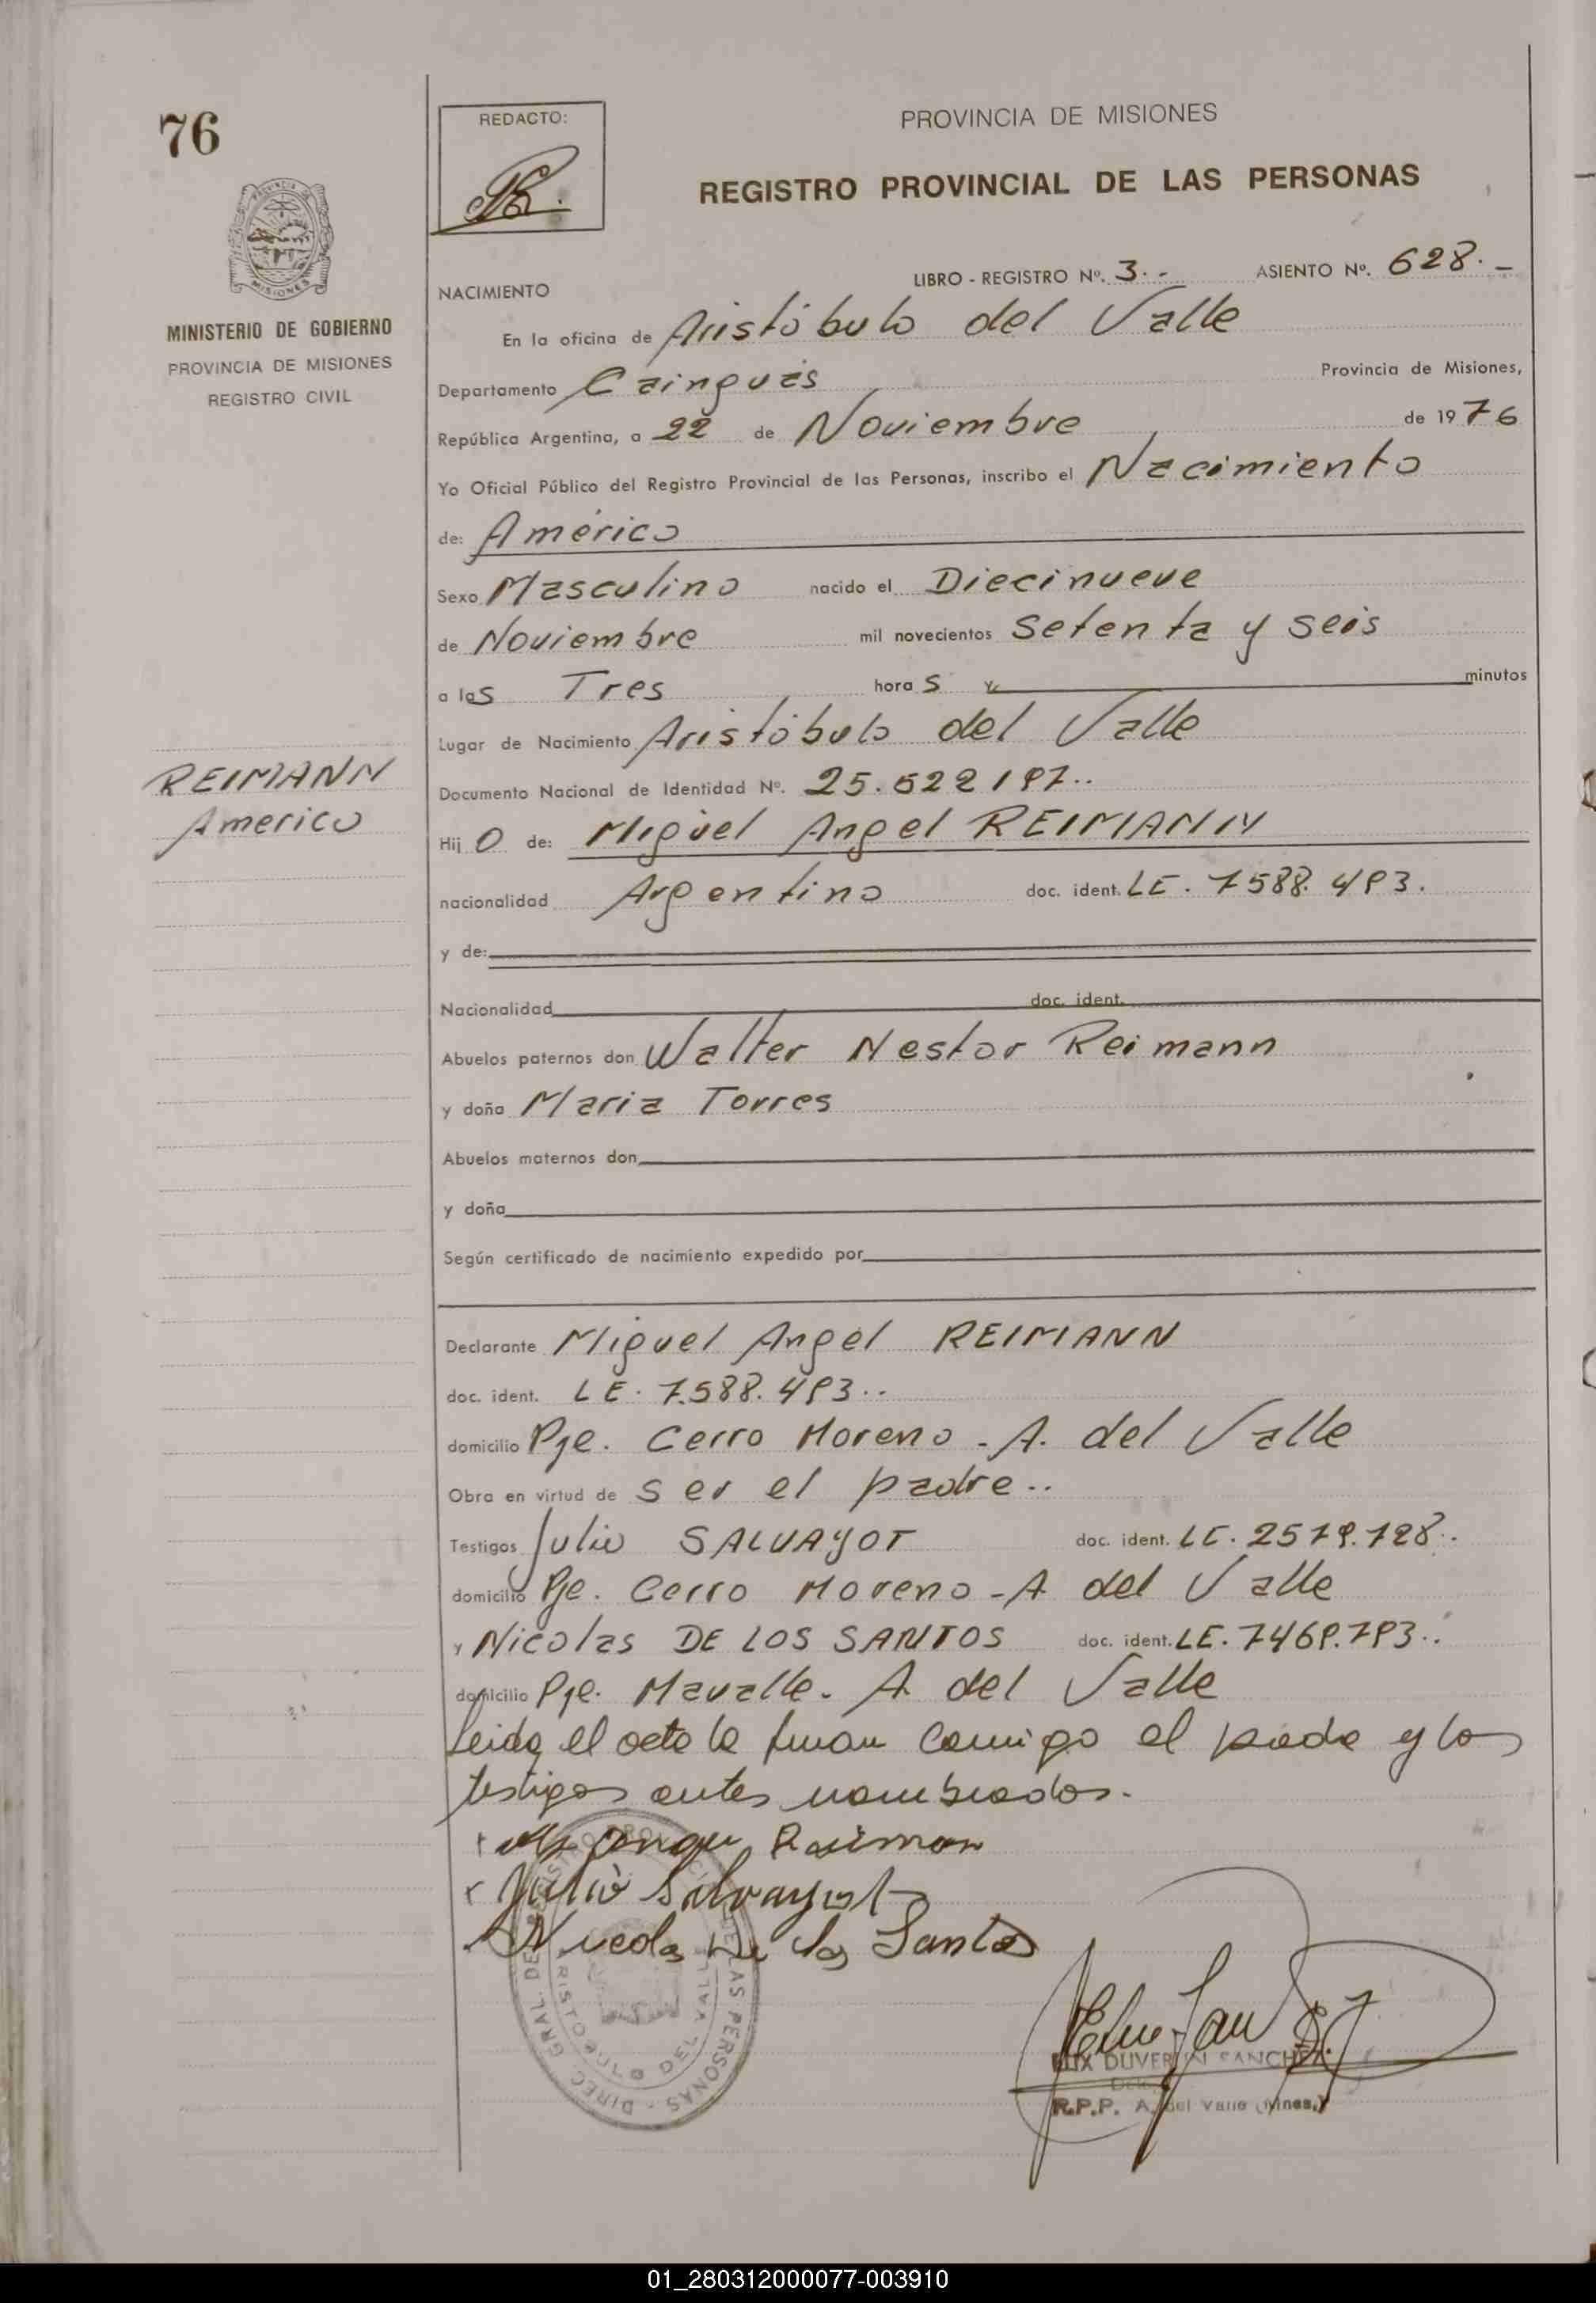 76
REDACTO:
PROVINCIA DE MISIONES
REGISTRO PROVINCIAL DE LAS PERSONAS
MISIONES
MINISTERIO DE GOBIERNO
PROVINCIA DE MISIONES
REGISTRO CIVIL
REIMANN
Americo
NACIMIENTO
LIBRO - REGISTRO Nº. 3.- ASIENTO Nº. 628.-
En la oficina de Aristóbulo del Valle
Departamento Cainguás Provincia de Misiones,
República Argentina, a 22 de Noviembre de 1976
Yo Oficial Público del Registro Provincial de las Personas, inscribo el Nacimiento
de: Américo
Sexo Masculino nacido el Diecinueve
de Noviembre mil novecientos Setenta y seis
a las Tres horas y minutos
Lugar de Nacimiento Aristóbulo del Valle
Documento Nacional de Identidad Nº. 25.522197..
Hijo de: Miguel Angel REIMANN
nacionalidad Argentino doc. ident. LE. 7588.493.
y de:
Nacionalidad doc. ident.
Abuelos paternos don Walter Nestor Reimann
y doña Maria Torres
Abuelos maternos don
y doña
Según certificado de nacimiento expedido por
Declarante Miguel Angel REIMANN
doc. ident. LE. 7.588.493..
domicilio Pje. Cerro Moreno - A. del Valle
Obra en virtud de ser el padre..
Testigos Julio SALVAYOT doc. ident. LE. 2579.728..
domicilio Pje. Cerro Moreno - A del Valle
y Nicolas DE LOS SANTOS doc. ident. LE. 7469.793..
domicilio Pje. Mavalle. A del Valle
Leida el acta la firman conmigo el padre y los
testigos antes nombrados.
Julio Salvayot
Nicolas De los Santos
DUVER SANCHEZ
R.P.P. A. del Valle (Mnes.)
DIREC. GRAL. DE REGISTRO PROVINCIAL DE LAS PERSONAS
ARISTOBULO DEL VALLE
01_280312000077-003910